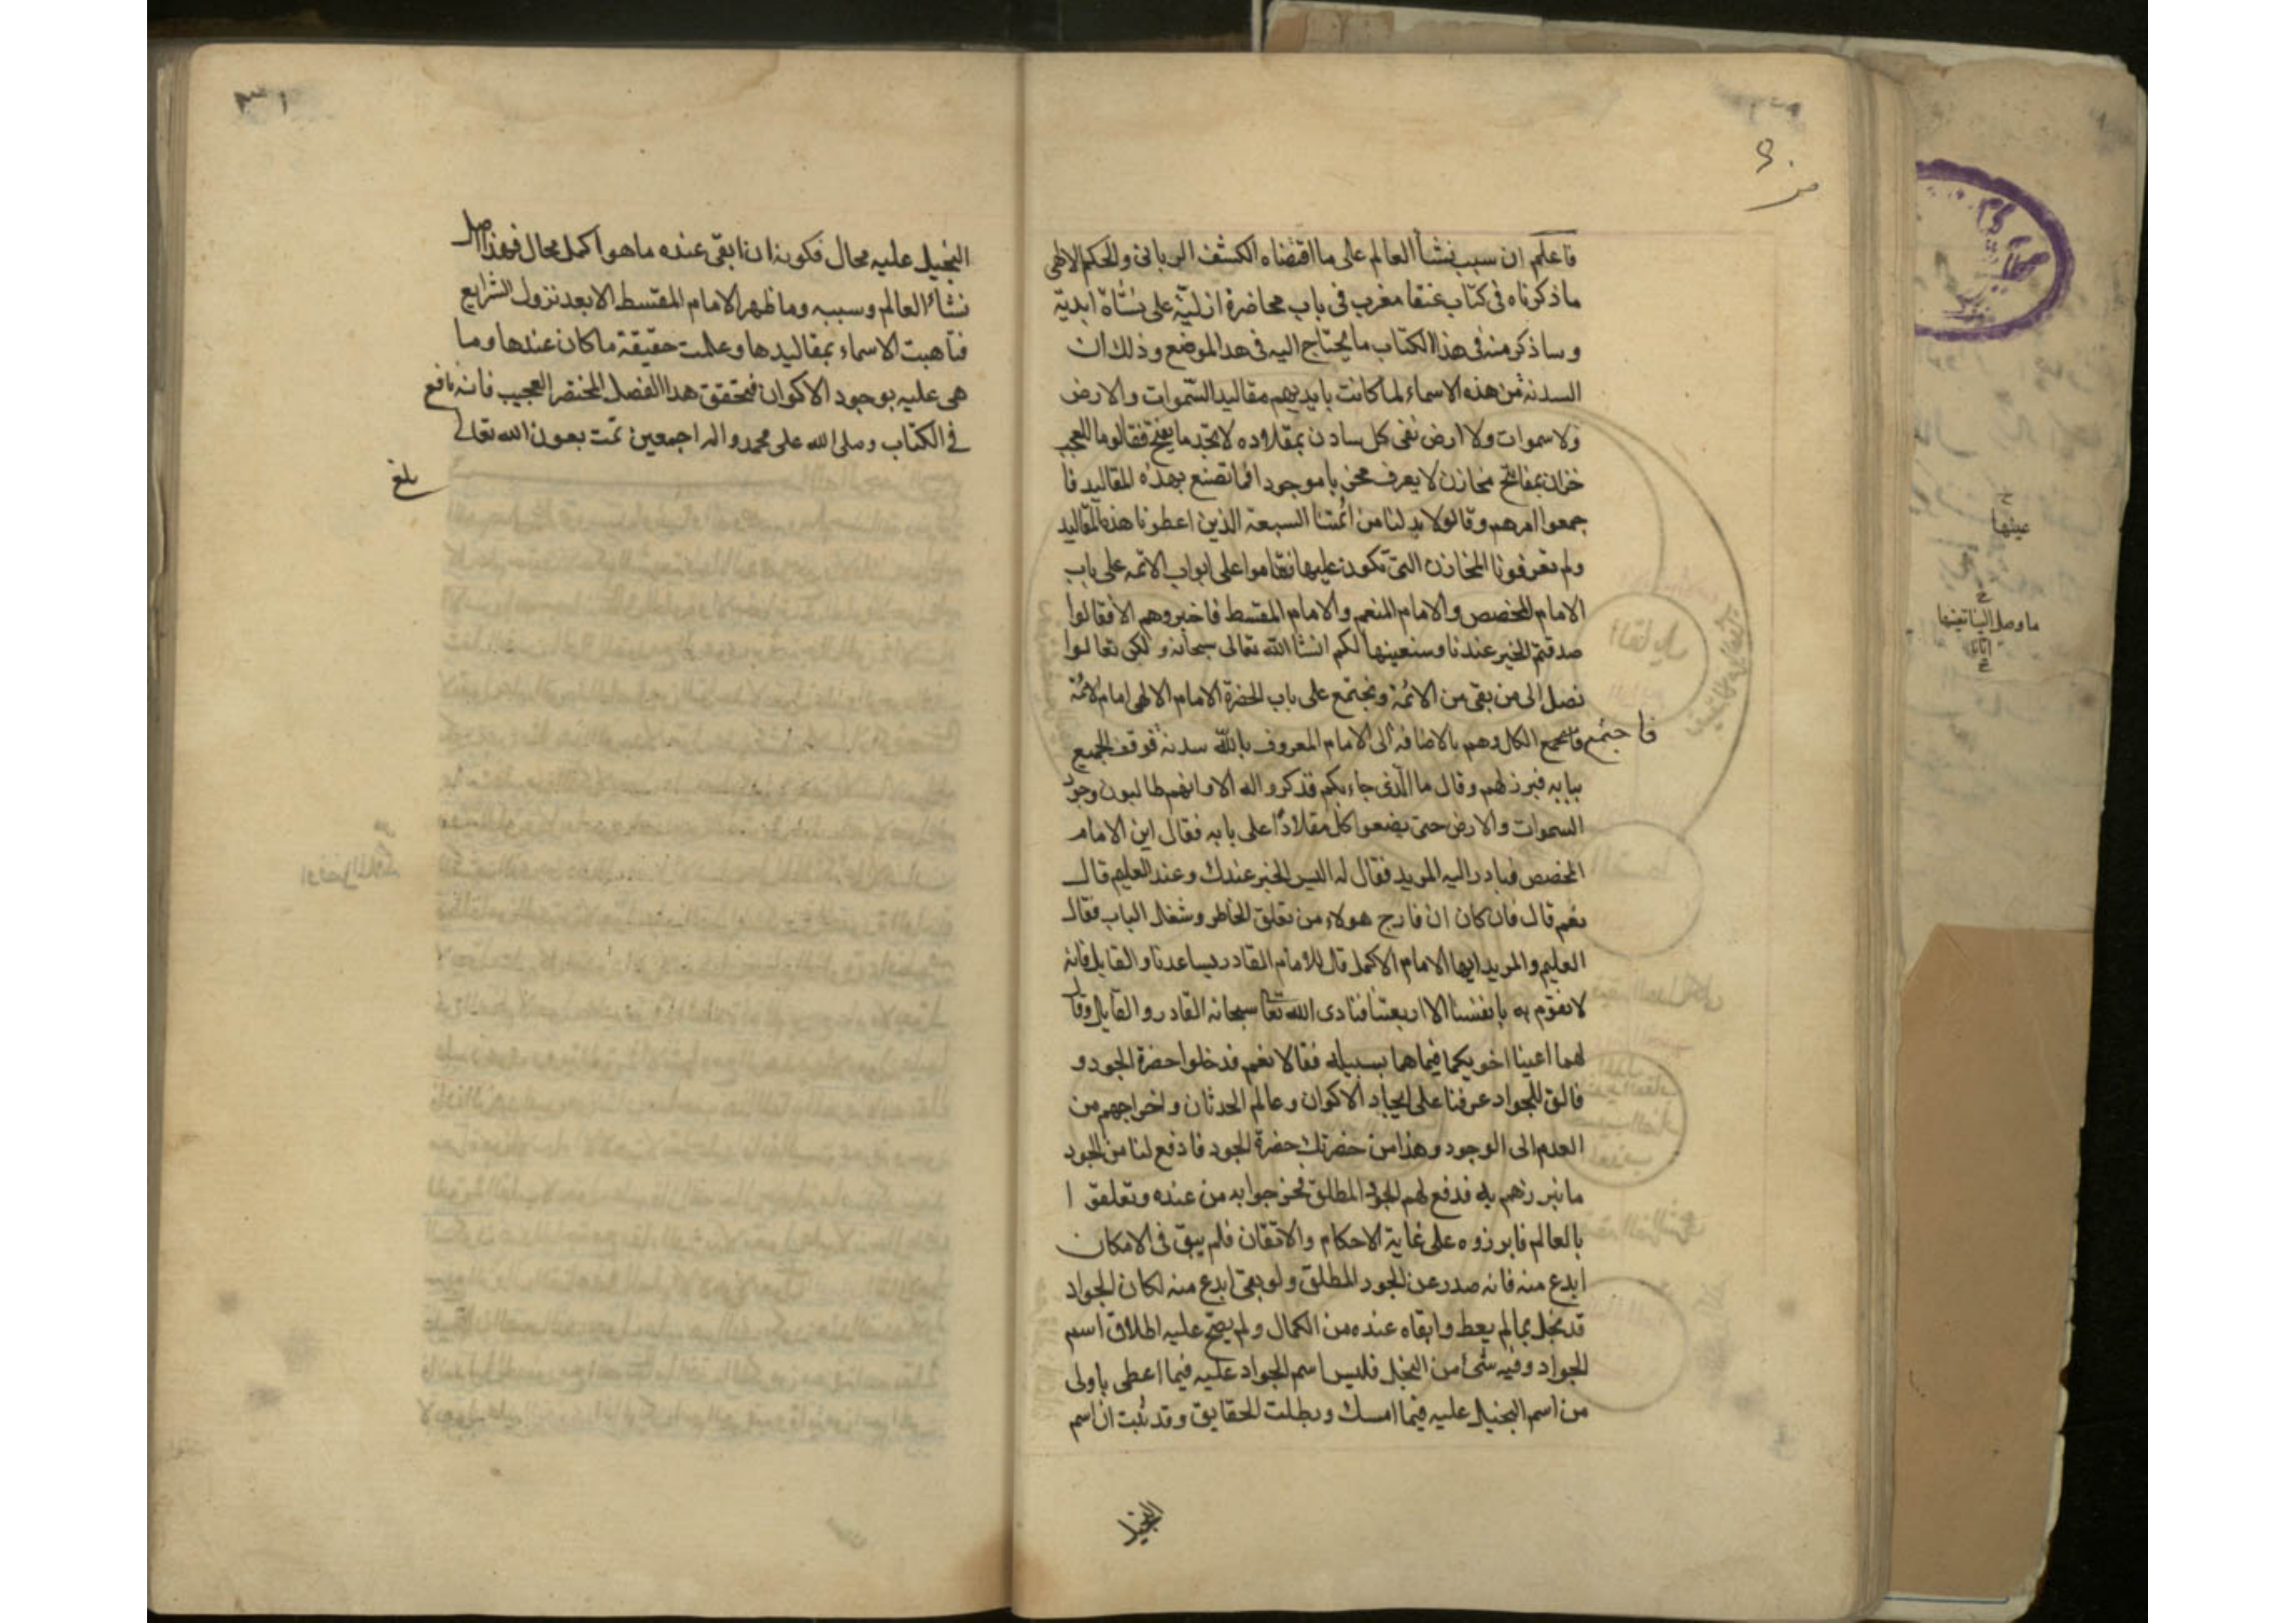 فاعلم ان سبب نشأ العالم على ما اقتضاه الكشف الربانى والحكم الالهى
ما ذكرناه فى كتاب عنقا مغرب فى باب محاضرة ازليّة على نشأة ابدية
وساذكر منه فى هذا الكتاب ما يحتاج اليه فى هدا الموضع وذلك ان
السدنة من هذه الاسماء لما كانت بايديهم مقاليد السّموات والارض
ولا سموات ولا ارض نفى كل سادن بمقلاده لا يجد ما يفتح فقالوما للعجب
خزان بمفاتح مخازن لا يعرف مخزنا موجودا فما تصنع بهذه المقاليد فا
جمعوا امرهم وقالو لا بد لنا من ائمتنا السبعة الذين اعطونا هذه المقاليد
ولم تعرفونا المخازن التى تكون عليها فقاموا على ابواب الائمه على باب
الامام المخصص والامام المنعم والامام المقسط فاخبروهم الامر فقالوا
صدقتم الخبر عندنا وسنعينها لكم انشا الله تعالى سبحانه ولكن تعالوا
نصل الى من بقى من الائمة ونجتمع على باب الحضرة الامام الالهى امام الائمة
فاجتمع
الكل وهم بالاضافه الى الامام المعروف بالله سدنة فوقف الجميع
ببابه فبرز لهم وقال ما الّذى جاء بكم فذكروا له الامر وانهم طالبون وجود
السموات والارض حتى يضعوا كل مقلادٍ على بابه فقال اين الامام
المخصص فبادر اليه المريد فقال له اليس الخبر عندك وعند العليم قال
نعم قال فان كان ان فارح هولاء من تعلق الخاطر وشغل الباب فقال
العليم والمريد ايها الامام الاكمل قال للامام القادر يساعدنا والقايل فانه
لا نقوم به بانفسنا الا اربعتنا فنادى الله تعا سبحانه القادر والقايل وقال
لهما اعينا اخويكما فيما هما بسبيله فقالا نعم فدخلوا حضرة الجود و
قالو للجواد عزمنا على ايجاد الاكوان وعالم الحدثان واخراجهم من
العدم الى الوجود وهذا من حضرتك حضرة الجود فادفع لنا من الجود
ما نبرزهم به فدفع لهم الجود المطلق فخرجوا به من عنده وتعلقوا
بالعالم فابرزوه على غاية الاحكام والاتقان فلم يبق فى الامكان
ابدع منه فانه صدر عن الجود المطلق ولو بقى ابدع منه لكان الجواد
قد بخل بما لم يعط وابقاه عنده من الكمال ولم يصح عليه اطلاق اسم
الجواد وفيه شئ من البخل فليس اسم الجواد عليه فيما اعطى باولى
من اسم البخيل عليه فيما امسك وبطلت الحقايق وقد ثبت ان اسم
البخيل
البخيل عليه محال فكونه ان ابقى عنده ما هو اكمل محال فهذا اصل
نشاء العالم وسببه وما ظهر الامام المقسط الا بعد نزول الشرايع
فتاهبت الاسماء بمقاليدها وعلمت حقيقة ما كان عندها وما
هى عليه بوجود الاكوان فتحقق هدا الفصل المختصر العجيب فانه نافع
فى الكتاب وصلى الله على محمد واله اجمعين تمت بعون الله تعالى
بلغ
٣١
عينها
ما وصل الينا تعينها